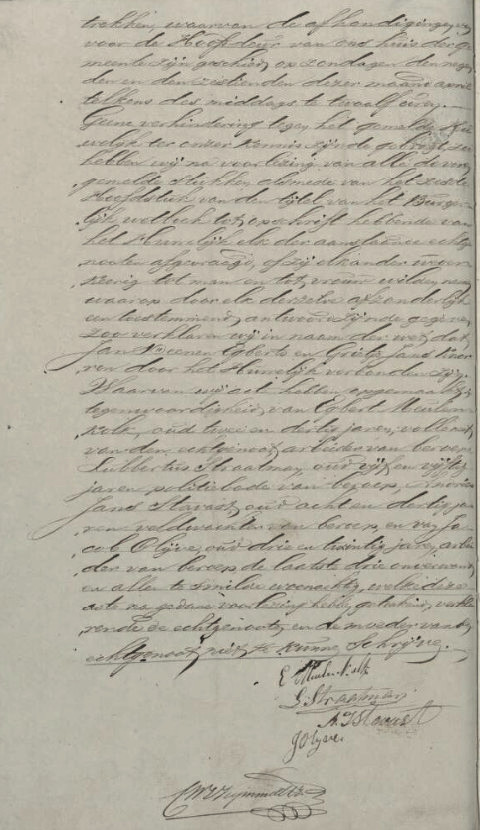 trekken, waarvan de afkondigingen,
voor de Hoofddeur van ons huis der ge-
meente zijn geschied, op zondagen den negen
den en den zestienden dezer maand april
telkens des middags te twaalf uren.
Geene verhindering tegen het gemelde Hu
welijk ter onzer kennis zijnde gebragt, zoo
hebben wij na voorlezing van alle de voren
gemelde stukken, alsmede van het zesde
Hoofdstuk van den tijtel van het Burger-
lijk wetboek tot opschrift hebbende van
het Huwelijk elk der aanstaande echtge-
nooten afgevraagd, of zij elkander weder-
keerig tot man en tot vrouw wilden nemen
waarop door elk derzelve afzonderlijk
een toestemmend, antwoord zijnde gegeven
zoo verklaren wij in naam der wet, dat
Jan Egberts en Grietje Jans
ren door het Huwelijk verbonden zijn.
Waarvan wij acte hebben opgemaakt in
tegenwoordigheid, van Egbert Meulen-
kolk, oud twee en dertig jaren,
van den echtgenoot arbeider van beroep
Lubbertus Straatman, oud vijf en vijftig
jaren politiebode van beroep,
Jans Stavast, oud acht en dertig ja
ren veldwachter van beroep, en van Ja
cob Olijve, oud drie en twintig jaren arbei
der van beroep de laatste drie onverwant
en allen te Smilde woonachtig, welke deze
acte na gedane voorlezing hebben geteekend, verkla
rende de echtgenooten en de moeder van den
echtgenoot niet te kunnen Schrijven.
E Meulenkolk
L. Straatman
Stavast
J Olyve.